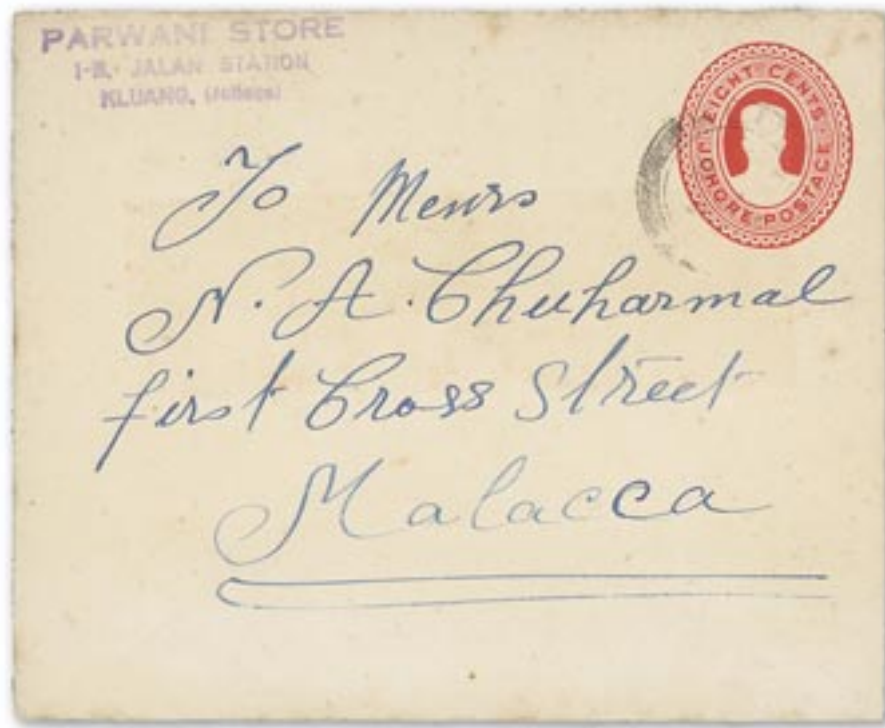 PARWANI STORE
1-B, JALAN STATION
KLUANG, (Johore)
EIGHT CENTS
JOHORE POSTAGE
To Messrs
N. A. Chuharmal
first Cross Street
Malacca